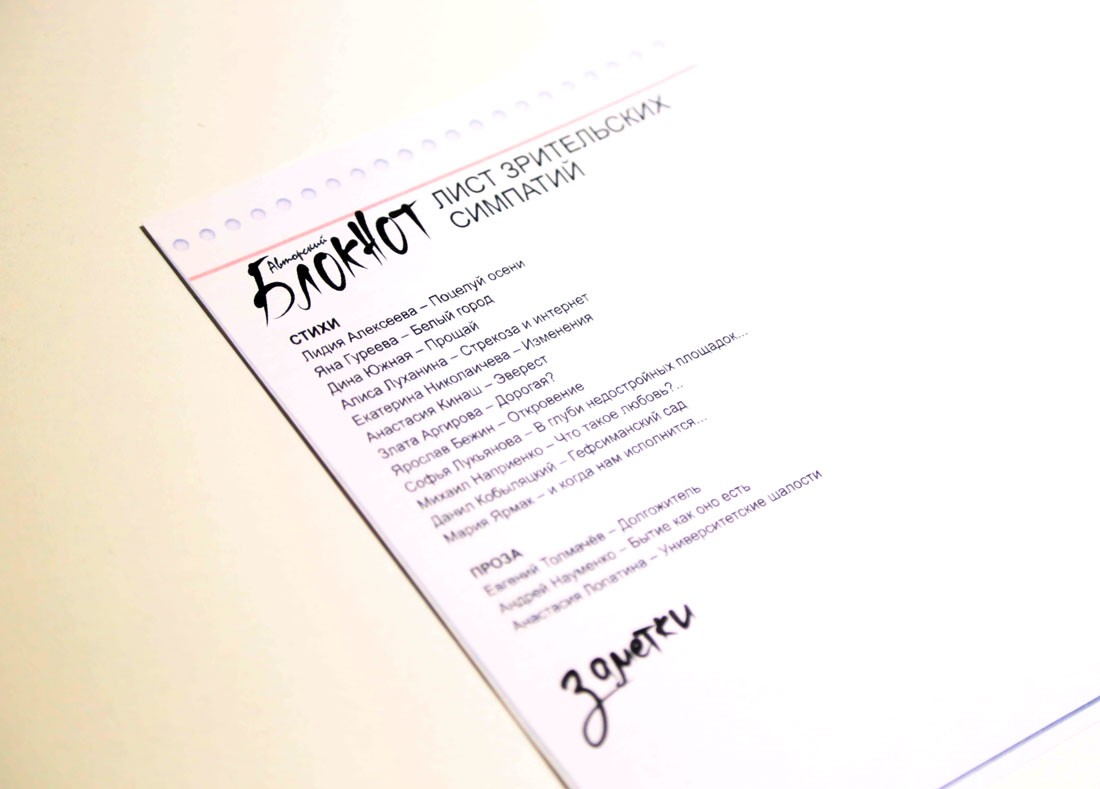 Авторский
БлокНот
ЛИСТ ЗРИТЕЛЬСКИХ
СИМПАТИЙ
СТИХИ
Лидия Алексеева – Поцелуй осени
Яна Гуреева – Белый город
Дина Южная – Прощай
Алиса Луханина – Стрекоза и интернет
Екатерина Николаичева – Изменения
Анастасия Кинаш – Эверест
Злата Аргирова – Дорогая?
Ярослав Бежин – Откровение
Софья Лукьянова – В глуби недостройных площадок...
Михаил Наприенко – Что такое любовь?..
Данил Кобыляцкий – Гефсиманский сад
Мария Ярмак – и когда нам исполнится...
ПРОЗА
Евгений Толмачёв – Долгожитель
Андрей Науменко – Бытие как оно есть
Анастасия Лопатина – Университетские шалости
заметки